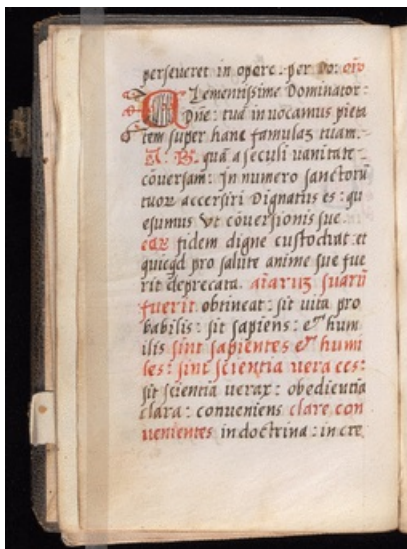 perseueret in opere. per do: oro
Clementissime Dominator:
Dne: tuã inuocamus pieta
tem super hanc famulaȝ tuam.
quã a seculi uanitate
cõuersam: In numero sanctorũ
tuoꝝ accersiri Dignatus es: qu
esumus Vt cõuersionis sue
eaꝝ fidem digne custodiat: et
quicqd pro salute anime sue fue
rit deprecata. aiãruȝ suarũ
fuerit obtineat: sit uita pro
babilis: sit sapiens: et hum
ilis sint sapientes et humi
les: sint scientia uera ces:
sit scientia uerax: obedientia
clara: conueniens clare con
uenientes in doctrina: in cre